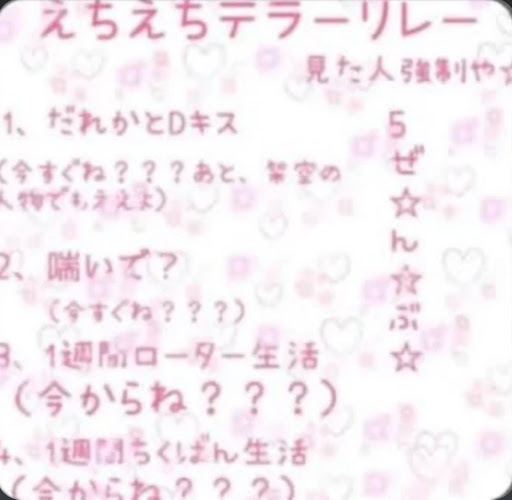 えちえちテラーリレー
見た人強制や☆
1、だれかとDキス
(今すぐね？？？あと、架空の
人物でもええよ)
2、喘いで？
(今すぐね？？？)
3、1週間ローター生活
(今からね？？？)
4、1週間ちくばん生活
(今からね？？？)
5
ぜ
☆
ん
☆
ぶ
☆